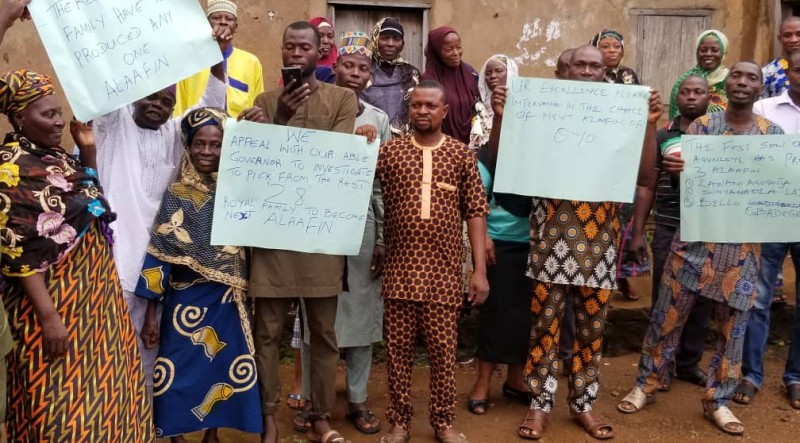 THERE
FAMILY HAVE
PRODUCED ANY
ONE
ALAAFIN
WE
APPEAL WITH OUR ABLE
GOVERNOR TO INVESTIGATE
TO PICK FROM THE REST
28
ROYAL FAMILY TO BECOME
NEXT ALAAFIN
UR EXCELLENCE PLEASE
INTERVENE IN THE CHOICE
OF NEXT ALAAFIN OF
OYO
THE FIRST SON
AGUNLOYE HAS PR
3 ALAAFIN
LAWANI AGOGOIJA
SIYANBOLA LA
BELLO GBADEG